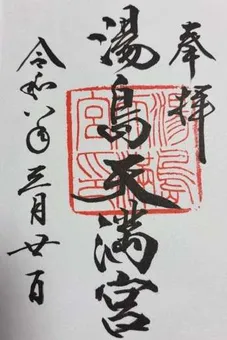 奉拝
湯島天満宮
湯島天満宮印
令和八年三月廿日